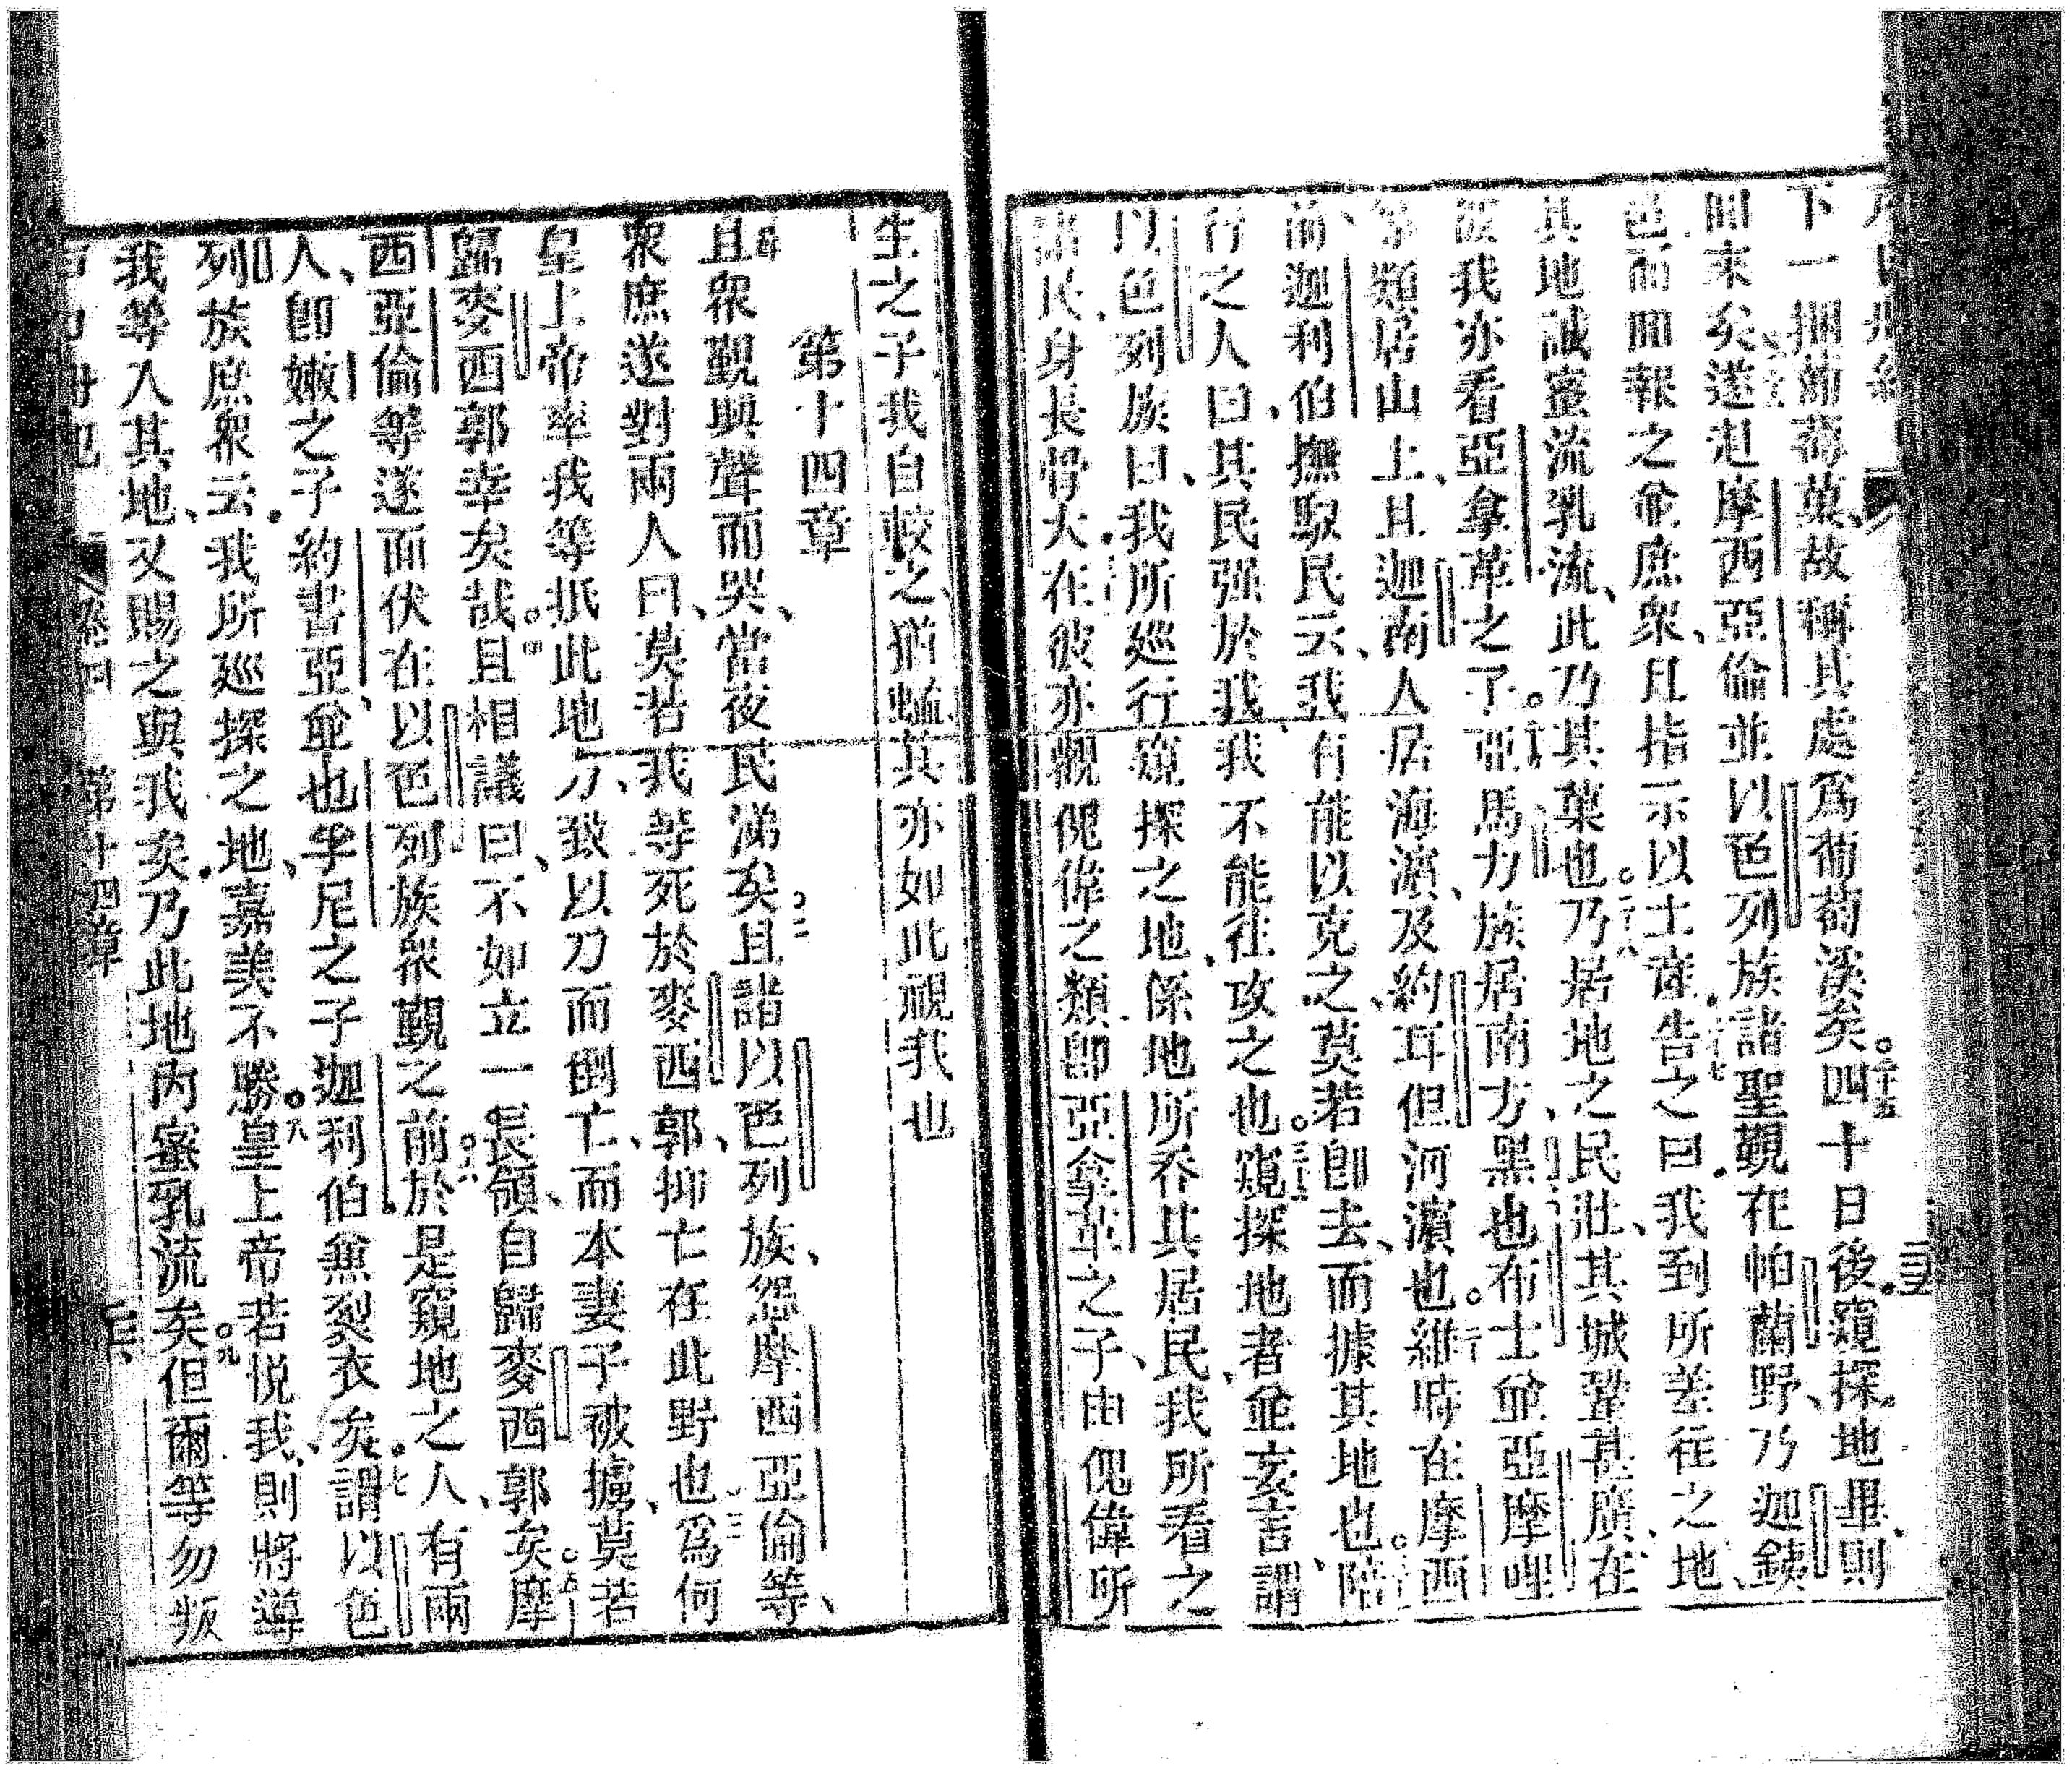 下一捆葡萄菓、故稱其處爲葡萄溪矣。二十五四十日後窺探地畢、則
囬來矣遂赴摩西亞倫並以色列族諸聖覲在帕蘭野、乃迦鉄
邑而囬報之並庶眾、且指示以土產告之曰我到所差往之地
其地誠蜜流乳流、此乃其菓也乃居地之民壯、其城鞏甚廣、在
彼我亦看亞拿革之子。亞馬力族居南方、黑也布士並亞摩哩
等類居山上、且迦南人居海濱、及約耳但河濱也。維時在摩西
前、迦利伯撫馭民云、我有能以克之、莫若卽去、而據其地也。陪
行之人曰、其民强於我、我不能往攻之也。窺探地者並妄言、謂
以色列族曰、我所巡行窺探之地、係地所吞其居民、我所看之
諸民、身長骨大。在彼亦觀傀偉之類、卽亞拿革之子、由傀偉所
生之子、我自較之、猶蜢、其亦如此視我也
第十四章
且眾覲與聲而哭、當夜民涕矣。二且諸以色列族、怨摩西亞倫等、
眾庶遂對兩人曰、莫若我等死於麥西郭、抑亡在此野也。三爲何
皇上帝率我等抵此地、力致以刀而倒亡、而本妻子被擄、莫若
歸麥西郭幸矣哉。四且相議曰、不如立一長領、自歸麥西郭矣。五摩
西亞倫等遂面伏在以色列族眾覲之前。六於是窺地之人、有兩
人、卽嫩之子約書亞、並也孚尼之子迦利伯、並裂衣矣。七謂以色
列族庶眾云、我所巡探之地、嘉美不勝。八皇上帝若悅我、則將導
我等入其地、又賜之與我矣、乃此地內蜜乳流矣。九但爾等勿叛
第十四章